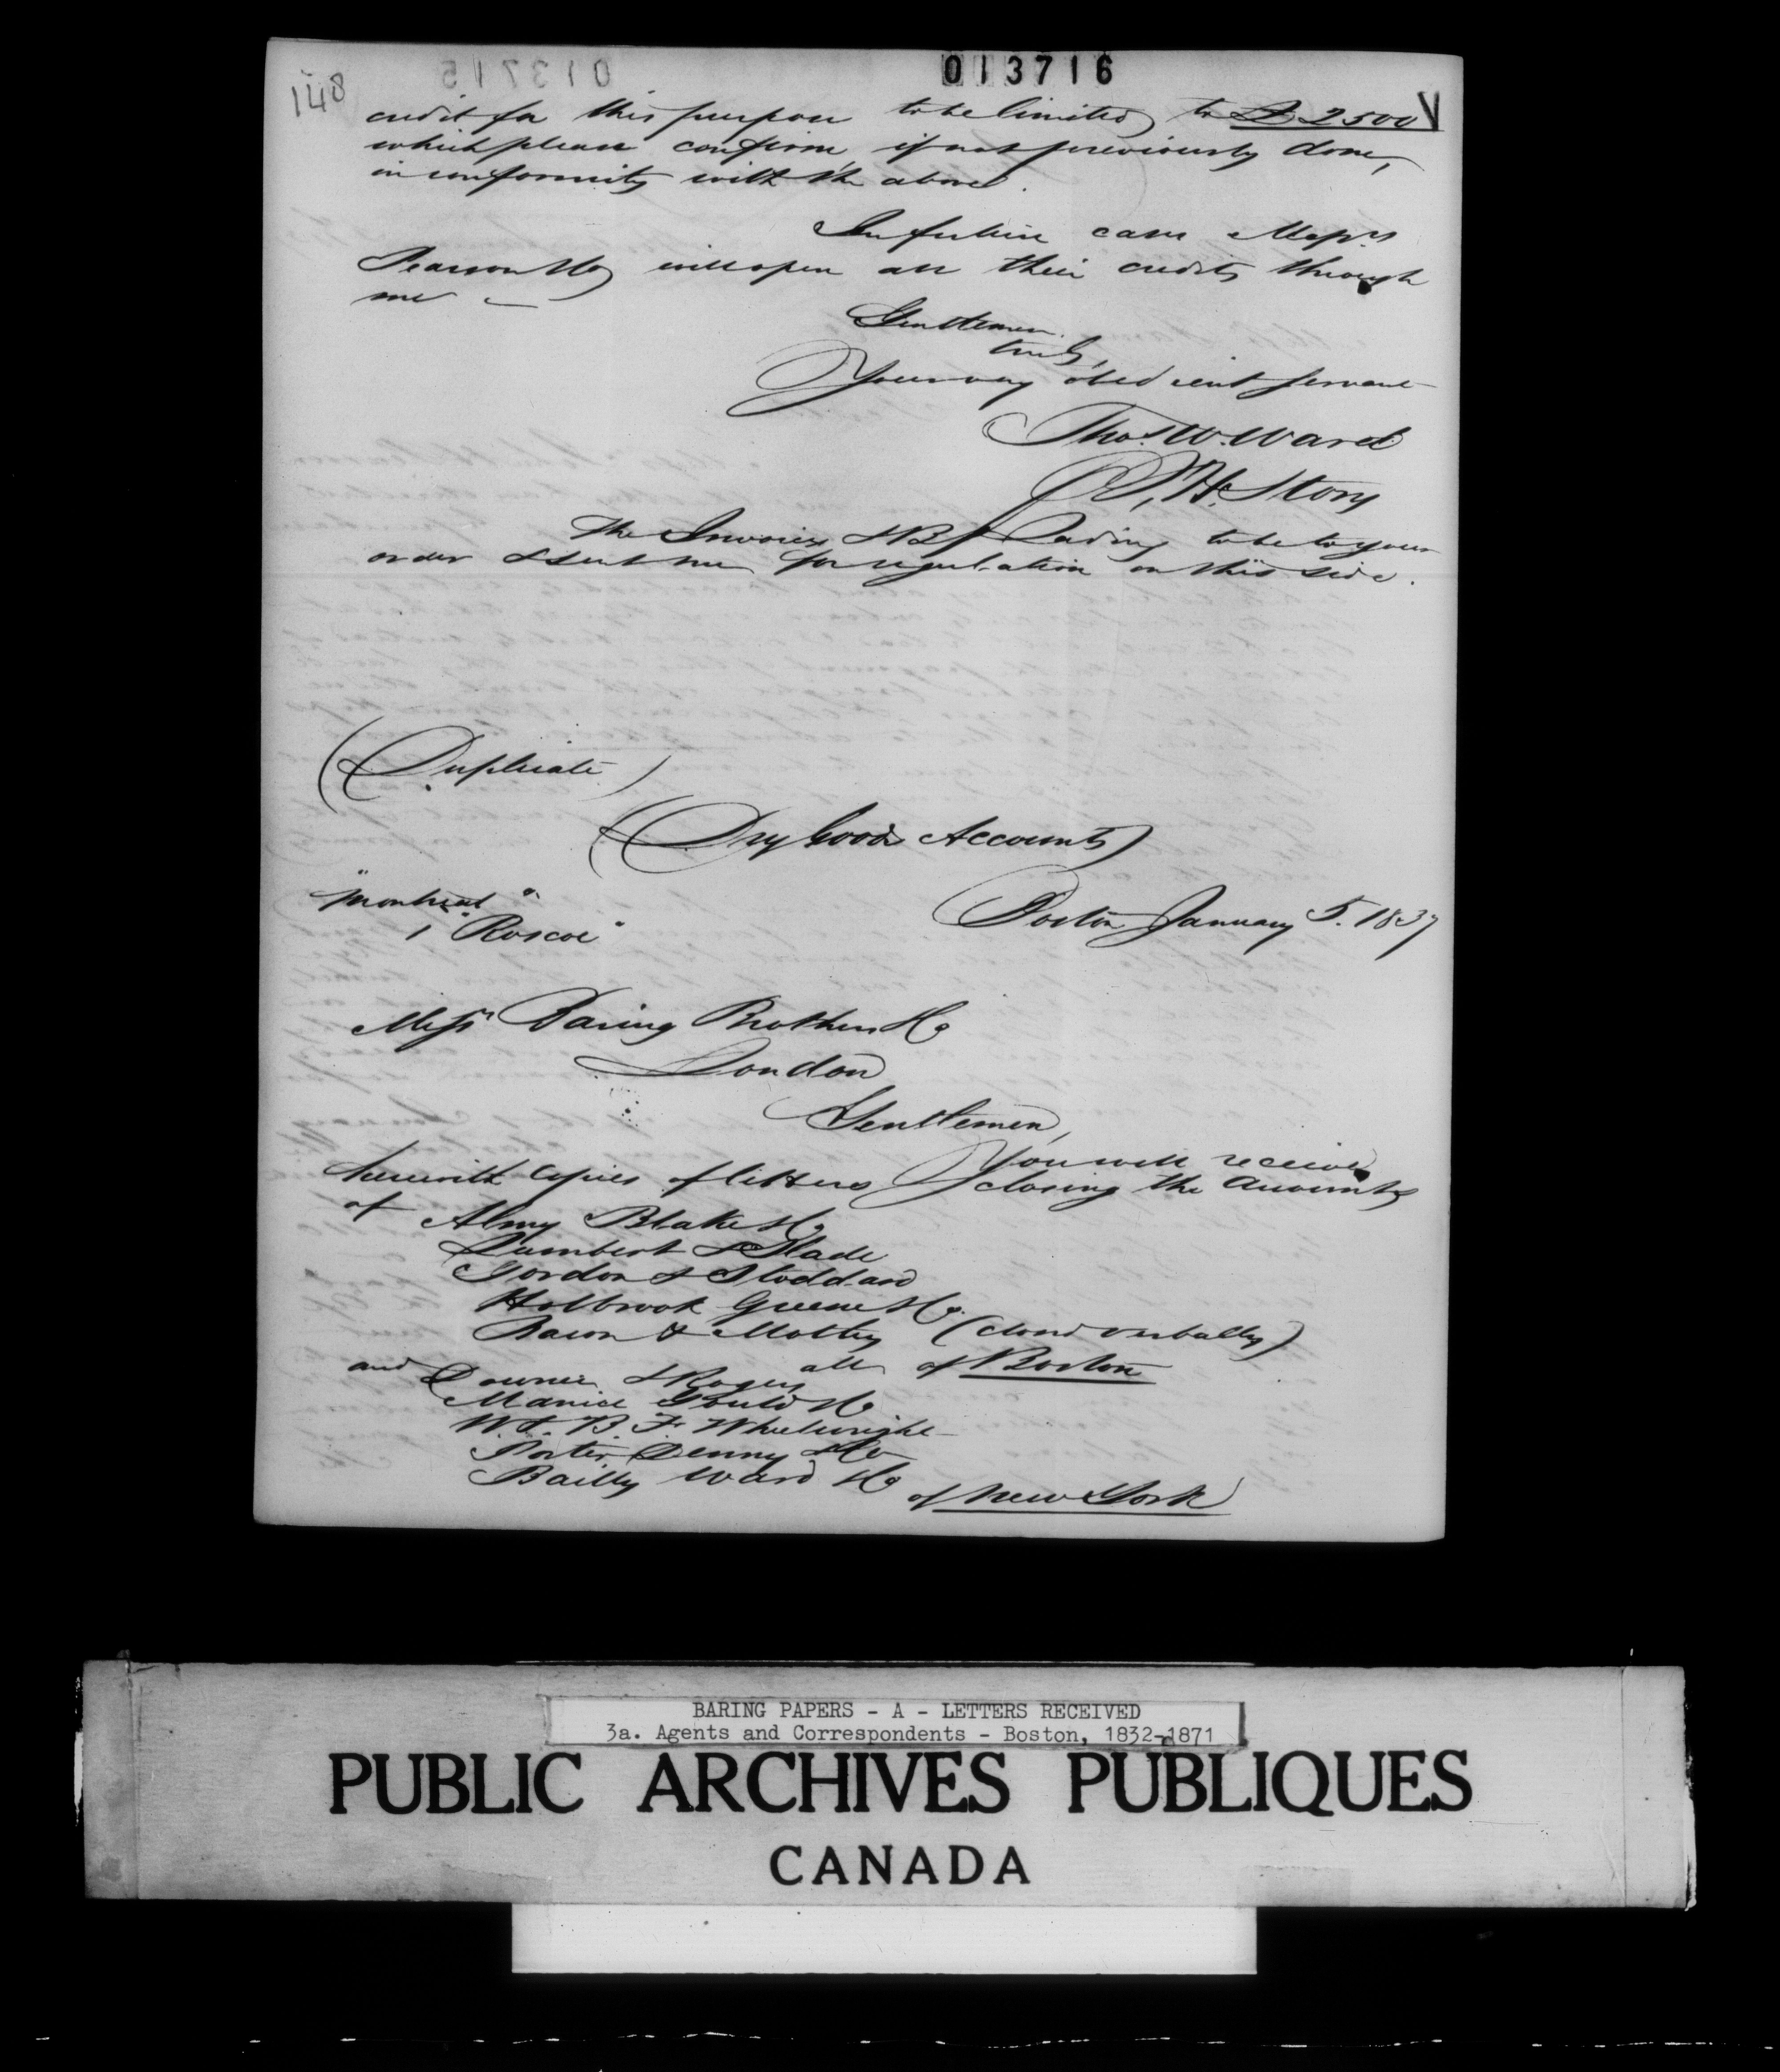 013716
148
credit for this purpose to be limited to £2500
which please confirm, if not previously done,
in conformity with the above.
In future case Messrs
Pearson & Co will open all their credits through
me —
Gentlemen
truly,
Your very obedient servant
Thos. W. Ward
P. H. Story
The Invoices & B/ Lading to be to your
order & sent me for regulation on this side.
(Duplicate)
(Dry Goods Accounts)
"Montreal"
, "Roscoe"
Boston January 5. 1837
Messrs Baring Brothers & Co
London
Gentlemen,
You will receive
herewith copies of letters closing the accounts
of Almy Blake & Co
Lumbert & Slade
Gordon & Stoddard
Holbrook Greene & Co.
Bacon & Motley (closed verbally)
all of Boston
and Downer & Rogers
Manice Gould & Co
W. & B. F. Wheelwright
Porter Denny & Co
Bailly Ward & Co
of New York
BARING PAPERS - A - LETTERS RECEIVED
3a. Agents and Correspondents - Boston, 1832-1871
PUBLIC ARCHIVES PUBLIQUES
CANADA